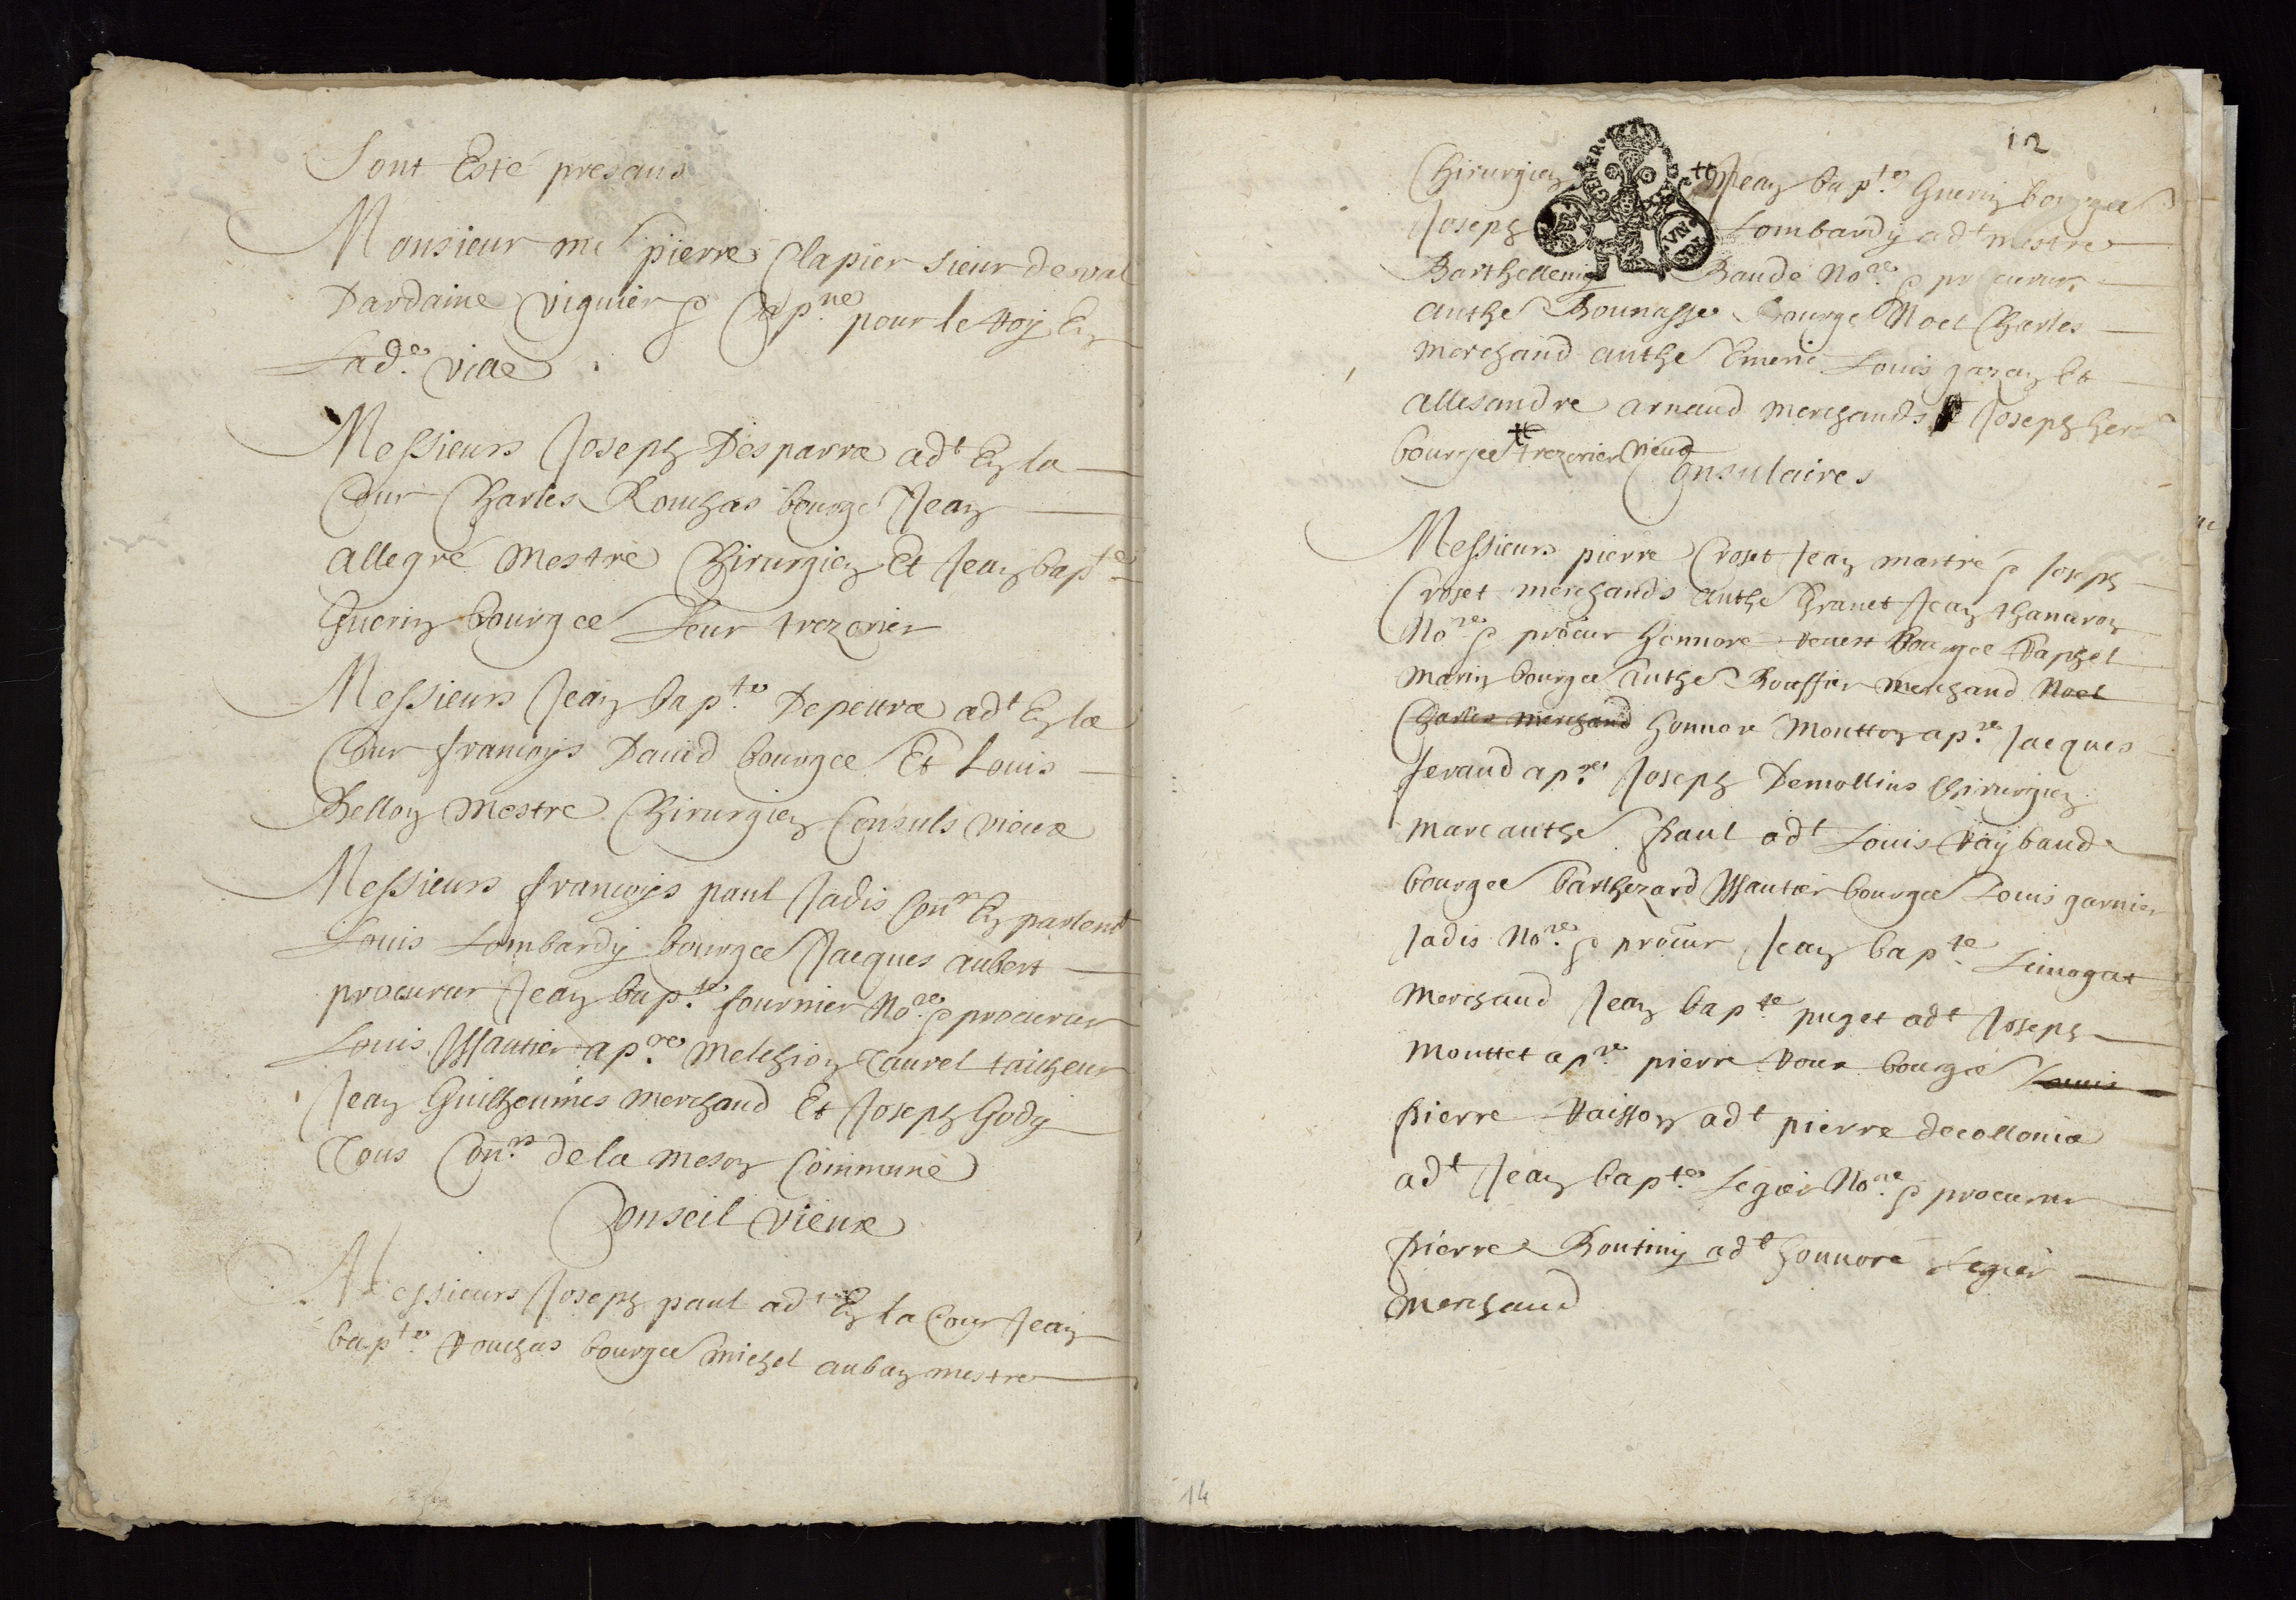 Sont Esté presans
Monsieur me pierre Clapier sieur de val
Dardaine viguier & Cap.ne pour le Roy En
Lad.e ville
Messieurs Joseph Desparra adt En la
Cour Charles Rouchas bourge Jean
allegre Mestre Chirurgien Et Jean bapte
Guerin bourgee Leur trezorier
Messieurs Jean bap.te Depettra adt En la
Cour francoys David bourgee Et Louis
Hellon Mestre Chirurgien Consuls vieux
Messieurs francoys paul Jadis Con.er En parlent
Louis Lombardy bourgee Jacques aubert
procurur Jean bap.te fournier No.re & procurur
Louis Yssautier ap.re Melchion Caurel tailheur
Jean Guilheumes Merchand Et Joseph Gody
Tous Con.rs de la meson Commune
Conseil vieux
Messieurs Joseph paul adt En la Cour Jean
bap.te Rouchas bourgee michel auban mestre
12
Chirurgien Jean bap.te Guerin bourgee
Joseph Lombardy adt mestre
Barthellemy Baude No.re & procurur
anthe Bounasse bourge Noel Charles
Merchand anthe Emeric Louis gazan Et
allesandre arnaud Merchands Joseph
bourgee trezorier vieux
Consulaires
Messieurs pierre Croset Jean martre & Joseph
Croset merchands anthe Granet Jean thanaron
No.re & procur honnore Revest bourgee Raphel
Marin bourgee anthe Rouffier Merchand Noel
Charles merchand honnore Moutton ap.re Jacques
feraud ap.re Joseph Demollins Chirurgien
Marc anthe paul adt Louis Raÿbaud
bourgee Barthezard Yssautier bourgee Louis garnier
Jadis No.re & procur Jean bapte Limogat
Merchand Jean bapte puget adt Joseph
Mouttet ap.re pierre Roux bourgé Louis
pierre Raisson adt pierre decollonia
adt Jean bap.te Legier No.re & procurur
pierre Boutiny adt honnore Legier
Merchand
14